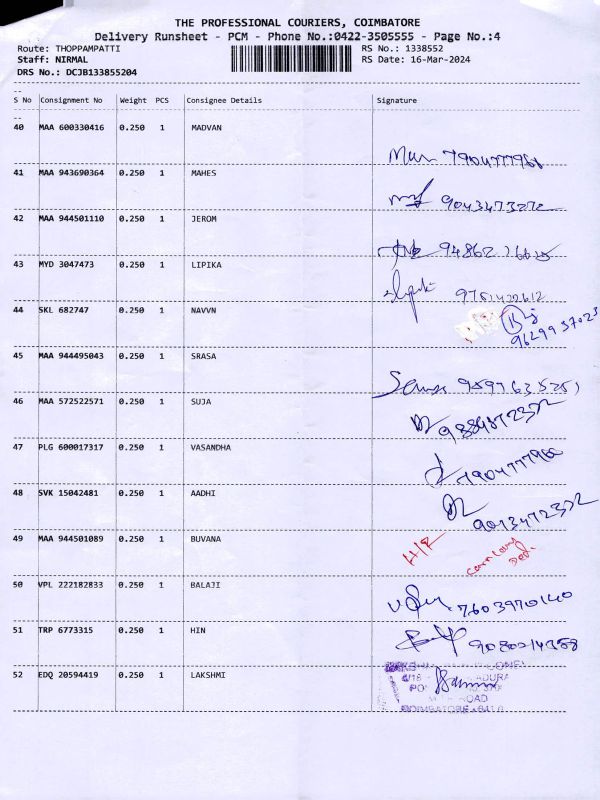 THE PROFESSIONAL COURIERS, COIMBATORE
Delivery Runsheet - PCM - Phone No.:0422-3505555 - Page No.:4
Route: THOPPAMPATTI
RS No.: 1338552
Staff: NIRMAL
RS Date: 16-Mar-2024
DRS No.: DCJB133855204
S No Consignment No Weight PCS Consignee Details Signature
40 MAA 600330416 0.250 1 MADVAN
41 MAA 943690364 0.250 1 MAHES
9043473272
42 MAA 944501110 0.250 1 JEROM
43 MYD 3047473 0.250 1 LIPIKA
44 SKL 682747 0.250 1 NAVVN
45 MAA 944495043 0.250 1 SRASA
46 MAA 572522571 0.250 1 SUJA
47 PLG 600017317 0.250 1 VASANDHA
48 SVK 15042481 0.250 1 AADHI
49 MAA 944501089 0.250 1 BUVANA
50 VPL 222182833 0.250 1 BALAJI
7603970140
51 TRP 6773315 0.250 1 HIN
52 EDQ 20594419 0.250 1 LAKSHMI
ROAD
COIMBATORE